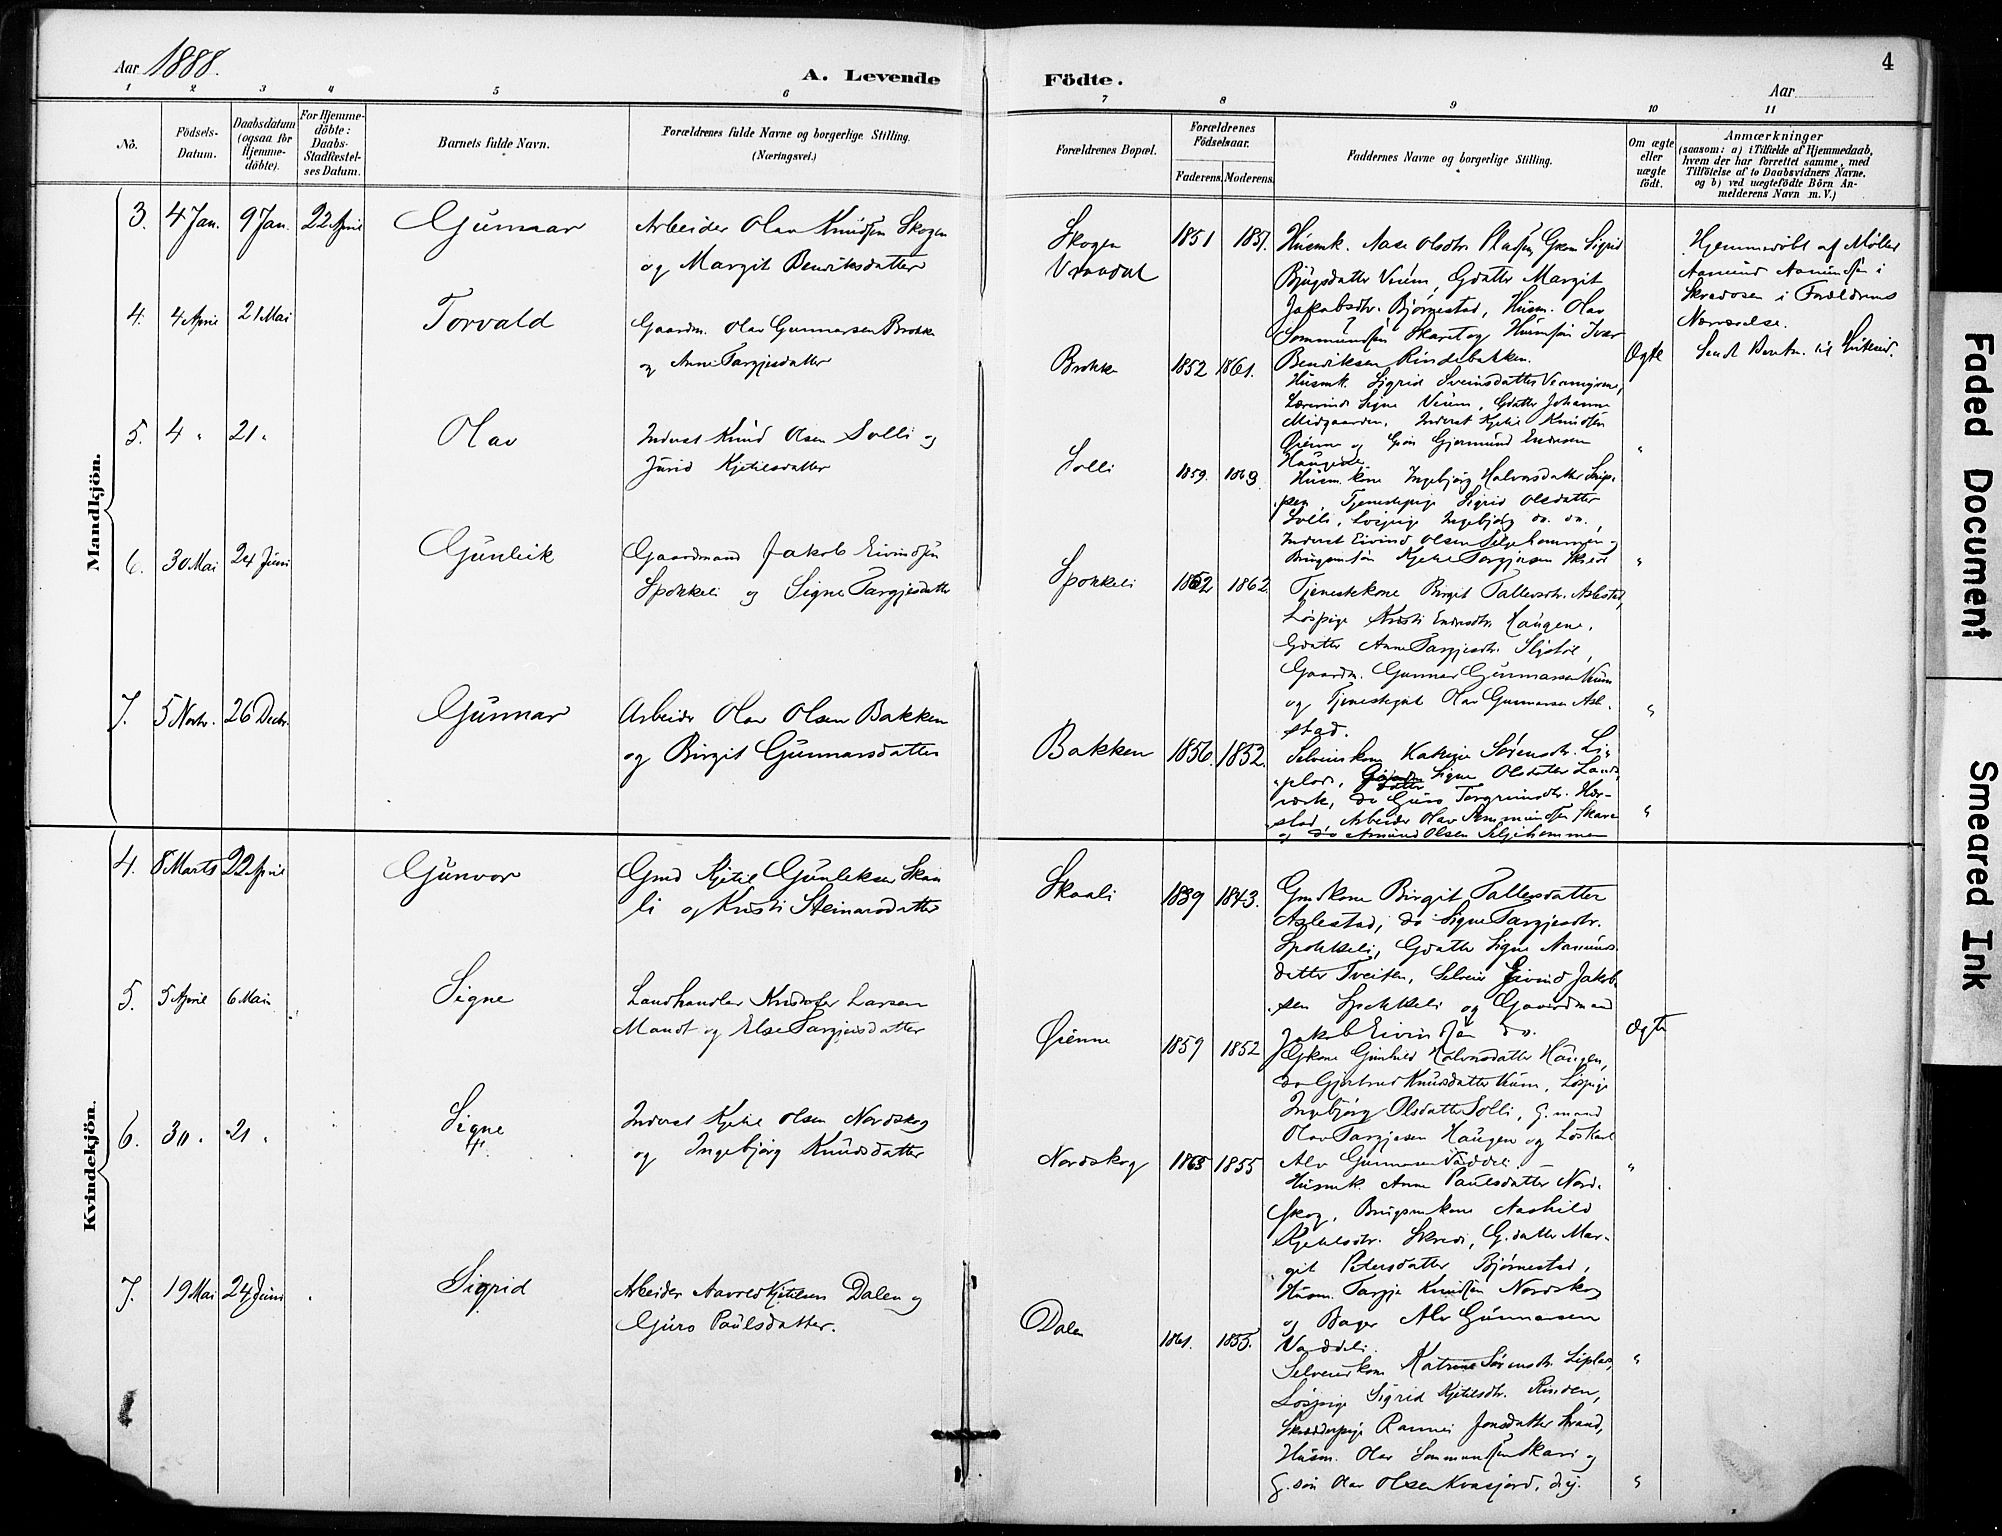 Aar 1888.
A. Levende
Födte.
Aar
4
1
2
3
4
5
6
7
8
9
10
11
No.
Födsels-
Datum.
Daabsdatum
(ogsaa for
Hjemme-
döbte).
For Hjemme-
döbte:
Daabs-
Stadfæstel-
ses Datum.
Barnets fulde Navn.
Forældrenes fulde Navne og borgerlige Stilling.
(Næringsvei.)
Forældrenes Bopæl.
Forældrenes
Födselsaar.
Faderens.
Moderens.
Faddernes Navne og borgerlige Stilling.
Om ægte
eller
uægte
födt.
Anmærkninger
(saasom: a) i Tilfælde af Hjemmedaab,
hvem der har forrettet samme, med
Tilföielse af to Daabsvidners Navne.
og b) ved uægtefödte Börn An-
melderens Navn m. V.)
Mandkjön.
3. 4 Jan. 9 Jan. 22 April Gunnar
Arbeider Olav Knudsen Skogen
og Margit Benriksdatter
Skogen
Vraadal
1851 1851.
Husmk. Aase Olsdtr. Gren Sigrid
Bjugsdatter Veum, Gdatter Margit
Jakobsdtr. Bjørnestad, Husm. Olav
Sommundsen Skare og Husmsøn Ivar
Benriksen Rindebakken.
Ægte
Hjemmedøbt af Møller
Aamund Aamundsen i
Skredosen i Forældrenes
Nærværelse.
4. 4 April 21 Mai Torvald
Gaardm. Olav Gunnarsen Brokke
og Anne Targjesdatter
Brokke 1852 1861.
Husmk. Sigrid Sveinsdatter
Lærerinde Signe Veum, Gdatter Johanne
Midgaarden, Inderst Kjetil Knudsen
Øienne og Gsøn Gjermund Endresen
Haugene
"
5. 4 " 21 " Olav
Inderst Knud Olsen Solli og
Jurid Kjetilsdatter
Solli 1859. 1863.
Husm.kone Ingebjørg Halvorsdatter
Tjenestepige Sigrid Olsdatter
Solli, Løspige Ingebjørg do. do.,
Inderst Eivind Olsen Seljehommen og
Brugsmsøn Kjetil Targjesen Skredi
"
6. 30 Mai 24 Juni Gunleik
Gaardmand Jakob Eivindsen
Spokkeli og Signe Targjesdatter
Spokkeli 1852 1862.
Tjenestekone Birgit Tallersdtr. Aslestad,
Løspige Kristi Endresdtr. Haugene,
Gdatter Anne Targjesdtr.
Gaardm. Gunnar Gunnarsen Veum
og Tjenestegut Olav Gunnarsen Asle-
stad.
"
7. 5 Novbr. 26 Decbr. Gunnar
Arbeider Olav Olsen Bakken
og Birgit Gunnarsdatter
Bakken 1856. 1852.
Selveierkone Katrine Sørensdtr. Li-
plas, Signe Olsdatter Land-
værk, do Guro Torgrimsdtr. Har-
stad, Arbeider Olav Sommundsen Skare
og do Amund Olsen Seljehommen
"
Kvindekjön.
4. 8 Marts 22 April Gunvor
Gmd Kjetil Gunleiksen Skaa
li og Kristi Steinarsdatter
Skaali 1839 1843.
Gmdkone Birgit Tallersdatter
Aslestad, do Signe Targjesdtr.
Spokkeli, Gdatter Signe Aamunds-
datter Tveiten, Selveier Eivind Jakob-
sen Spokkeli og Gaardmand
Jakob Eivindsen do.
Ægte
5. 5 April 6 Mai Signe
Landhandler Kristofer Larsen
Mandt og Else Targjesdatter
Øienne 1859 1852
Gkone Gunhild Halvorsdatter Haugen,
do Gjertrud Knudsdatter Veum, Løspige
Ingebjørg Olsdatter Solli, G.mand
Olav Targjesen Haugen og Løskarl
Alv Gunnarsen Vaddeli.
"
6. 30 " 21 " Signe
Inderst Kjetil Olsen Nordskog
og Ingebjørg Knudsdatter
Nordskog 1863 1855
Husmk. Anne Paulsdatter Nord-
skog, Brugsmkone Aashild
Kjetilsdtr. Skredi, G.datter Mar-
git Petersdatter Bjørnestad,
Husm. Targje Knudsen Nordskog
og Bager Alv Gunnarsen
Vaddeli.
"
7. 19 Mai 24 Juni Sigrid
Arbeider Aavold Kjetilsen Dalen og
Guro Paulsdatter.
Dalen 1861. 1855.
Selveierkone Katrine Sørensdtr. Liplas,
Løspige Sigrid Kjetilsdtr. Rinden,
Skrædderpige Rannei Jonsdatter Strand,
Husm. Olav Sommundsen Skare og
G.søn Olav Olsen Kvasjord,
"
Faded Document
Smeared Ink